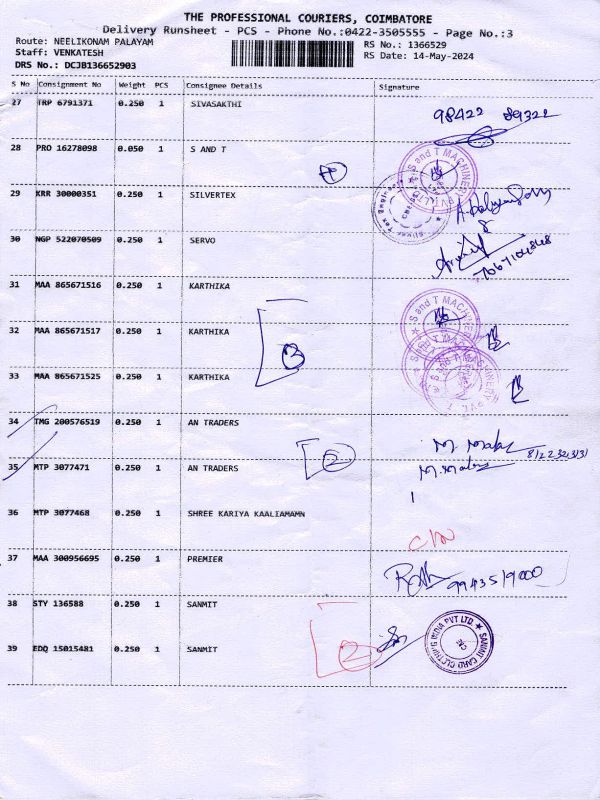 THE PROFESSIONAL COURIERS, COIMBATORE
Delivery Runsheet - PCS - Phone No.:0422-3505555 - Page No.:3
Route: NEELIKONAM PALAYAM
Staff: VENKATESH
DRS No.: DCJB136652903
RS No.: 1366529
RS Date: 14-May-2024
S No Consignment No Weight PCS Consignee Details Signature
27 TRP 6791371 0.250 1 SIVASAKTHI
98422 89322
28 PRO 16278098 0.050 1 S AND T
S and T MACHINERY
29 KRR 30000351 0.250 1 SILVERTEX
30 NGP 522070509 0.250 1 SERVO
31 MAA 865671516 0.250 1 KARTHIKA
S and T MACHINERY
32 MAA 865671517 0.250 1 KARTHIKA
33 MAA 865671525 0.250 1 KARTHIKA
34 TMG 200576519 0.250 1 AN TRADERS
35 MTP 3077471 0.250 1 AN TRADERS
2
36 MTP 3077468 0.250 1 SHREE KARIYA KAALIAMAMN
37 MAA 300956695 0.250 1 PREMIER
38 STY 136588 0.250 1 SANMIT
39 EDQ 15015481 0.250 1 SANMIT
2